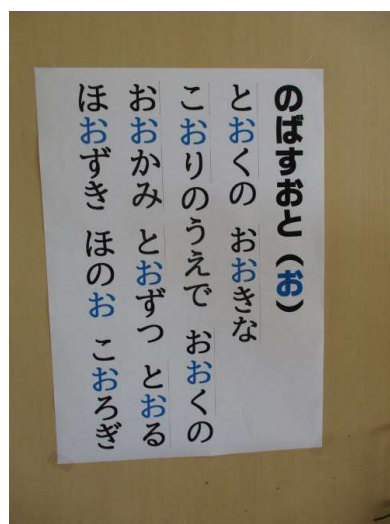 のばすおと（お）
とおくの おおきな
こおりのうえで おおくの
おおかみ とおずつ とおる
ほおずき ほのお こおろぎ